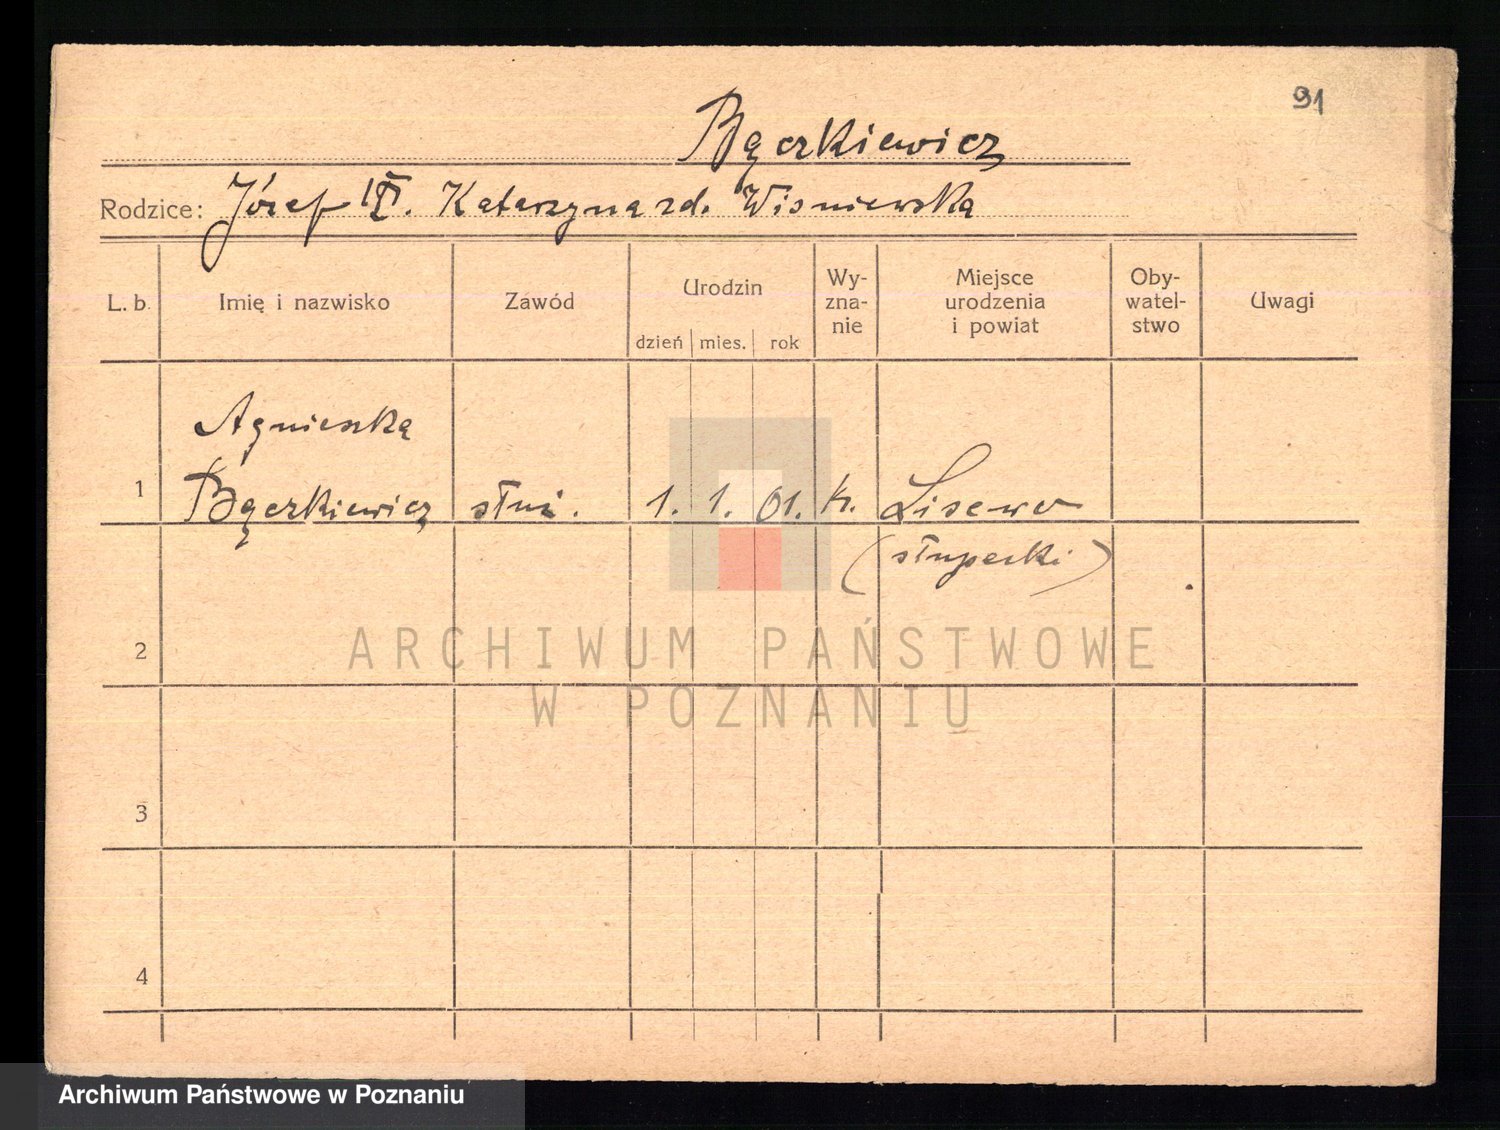 91
Bączkiewicz
Rodzice: Józef i Katarzyna zd. Wiśniewska
L. b. Imię i nazwisko Zawód Urodzin dzień mies. rok Wy-zna-nie Miejsce urodzenia i powiat Oby-watel-stwo Uwagi
Agnieszka
1 Bączkiewicz służ. 1. 1. 01. k. Lisewo
(słupecki)
2
ARCHIWUM PAŃSTWOWE
W POZNANIU
3
4
Archiwum Państwowe w Poznaniu